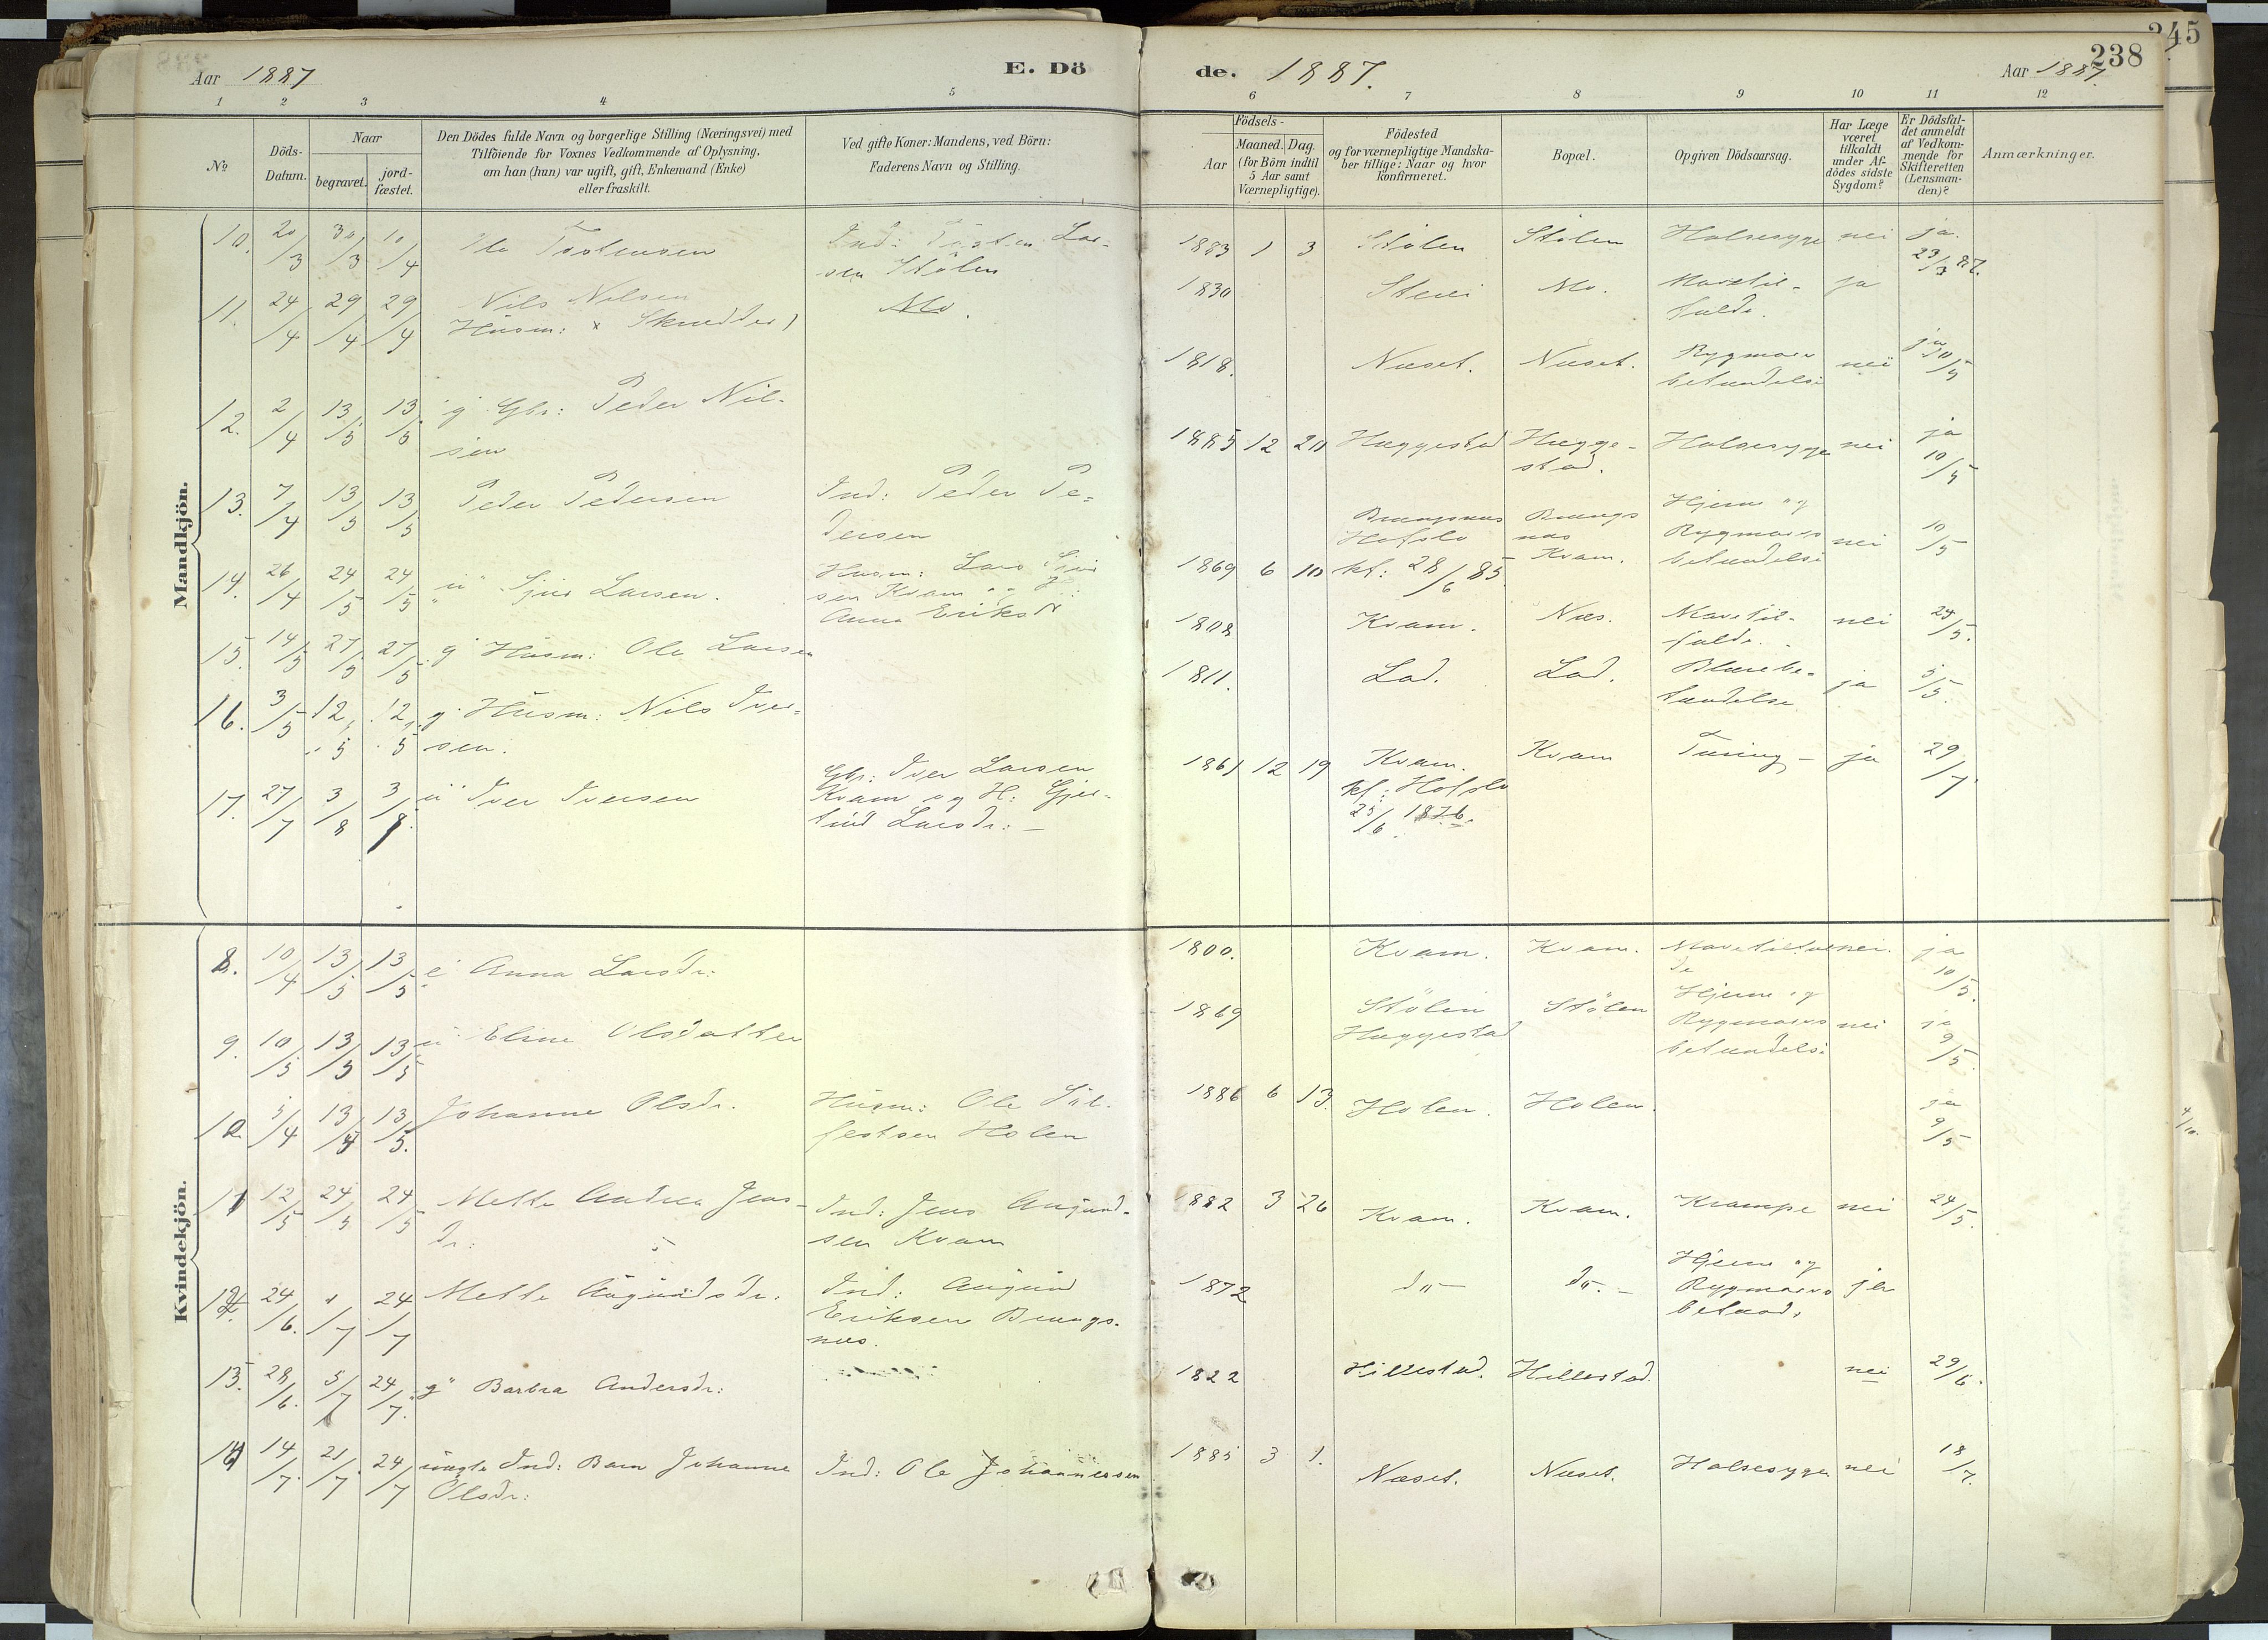 245
238
Aar 1887
E. Dö
de. 1887.
Aar 1887.
1 2 3 4 5 6 7 8 9 10 11 12
No
Döds-
Datum.
Naar
begravet.
jord-
fæstet.
Den Dödes fulde Navn og borgerlige Stilling (Næringsvei) med
Tilföiende for Voxnes Vedkommende af Oplysning,
om han (hun) var ugift, gift, Enkemand (Enke)
eller fraskilt.
Ved gifte Koner: Mandens, ved Börn:
Faderens Navn og Stilling.
Födsels-
Aar
Maaned. Dag.
(for Börn indtil
5 Aar samt
Værnepligtige).
Födested
og for værnepligtige Mandska-
ber tillige: Naar og hvor
konfirmeret.
Bopæl.
Opgiven Dödsaarsag.
Har Læge
været
tilkaldt
under Af-
dödes sidste
Sygdom?
Er Dödsfal-
det anmeldt
af Vedkom-
mende for
Skifteretten
(Lensman-
den)?
Anmærkninger.
Mandkjön.
10. 20/3 30/3 10/4 Ole Tostensen
Ind: Tosten Lar-
sen Stölen
1883 1 3 Stölen Stölen Halsesyge nei ja.
23/3 87.
11. 24/4 29/4 29/4 Nils Nilsen
Husm: x Skrædder)
Mo.
1830 Mo. Mavetil-
fulde. ja
12. 2/4 13/5 13/5 g Gbr: Peder Nil-
sen
1818. Næset. Næset. Rygmarv
betændelse nei ja 10/5
13. 7/4 13/5 13/5 Peder Pedersen
Ind: Peder Pe-
dersen
1885 12 20 Hæggestad Hægge-
stad. Halsesyge nei ja
10/5
14. 26/4 24/5 24/5 u Sjur Larsen.
Husm: Lars Sjur
sen Kvam og H:
Anna Eriksdr
1869 6 10 Brungsnæs
Hafslo
kf: 28/6 85. Brungs
næs
Kvam. Hjerne og
Rygmarvs
betændelse nei 10/5
15. 14/5 27/5 27/5 g Husm: Ole Larsen
1808 Kvam. Næs. Mavetil-
fulde. nei 24/5.
16. 3/5 12/5 12/5 g Husm: Nils Iver-
sen.
1811. Lad. Lad. Blærebe-
tændelse ja 5/5.
17. 27/7 3/8 3/8. u Iver Iversen
Gbr: Iver Larsen
Kvam og H: Gjer-
trud Larsdr: –
1861 12 19 Kvam.
kf: Hafslo
25/6. 1876. Kvam Tæring – ja 29/7
Kvindekjön.
8. 10/4 13/5 13/5 e Anna Larsdr:
1800. Kvam. Kvam. Mavetilful
de nei. ja
10/5.
9. 10/5 13/5 13/5 u Eline Olsdatter
1869 Stölen
Hæggestad Stölen Hjerne og
Rygmarvs
betændelse nei ja
9/5.
10. 5/4 13/5 13/5. Johanne Olsdr.
Husm: Ole Sül-
festsen Holen
1886 6 13. Holen. Holen. ja
9/5
11 12/5 24/5 24/5 Mette Andrea Jens-
dr:
Ind: Jens Augund-
sen Kvam
1882 3 26 Kvam. Kvam. Krampe nei 24/5.
12. 24/6. "/7 24/7 Mette Augundsdr.
Ind: Augund
Eriksen Brungs-
næs.
1872 do– do.– Hjerne og
Rygmarvs
betænd. ja
13. 28/6. 5/7 24/7. g Barbra Andersdr:
1822 Hillestad. Hillestad. nei 29/6.
14 14/7. 21/7 24/7 uægte Ind: Barn Johanne
Olsdr:
Ind: Ole Johannessen
1885 3 1. Næset. Næset. Halsesyge nei 18/7.